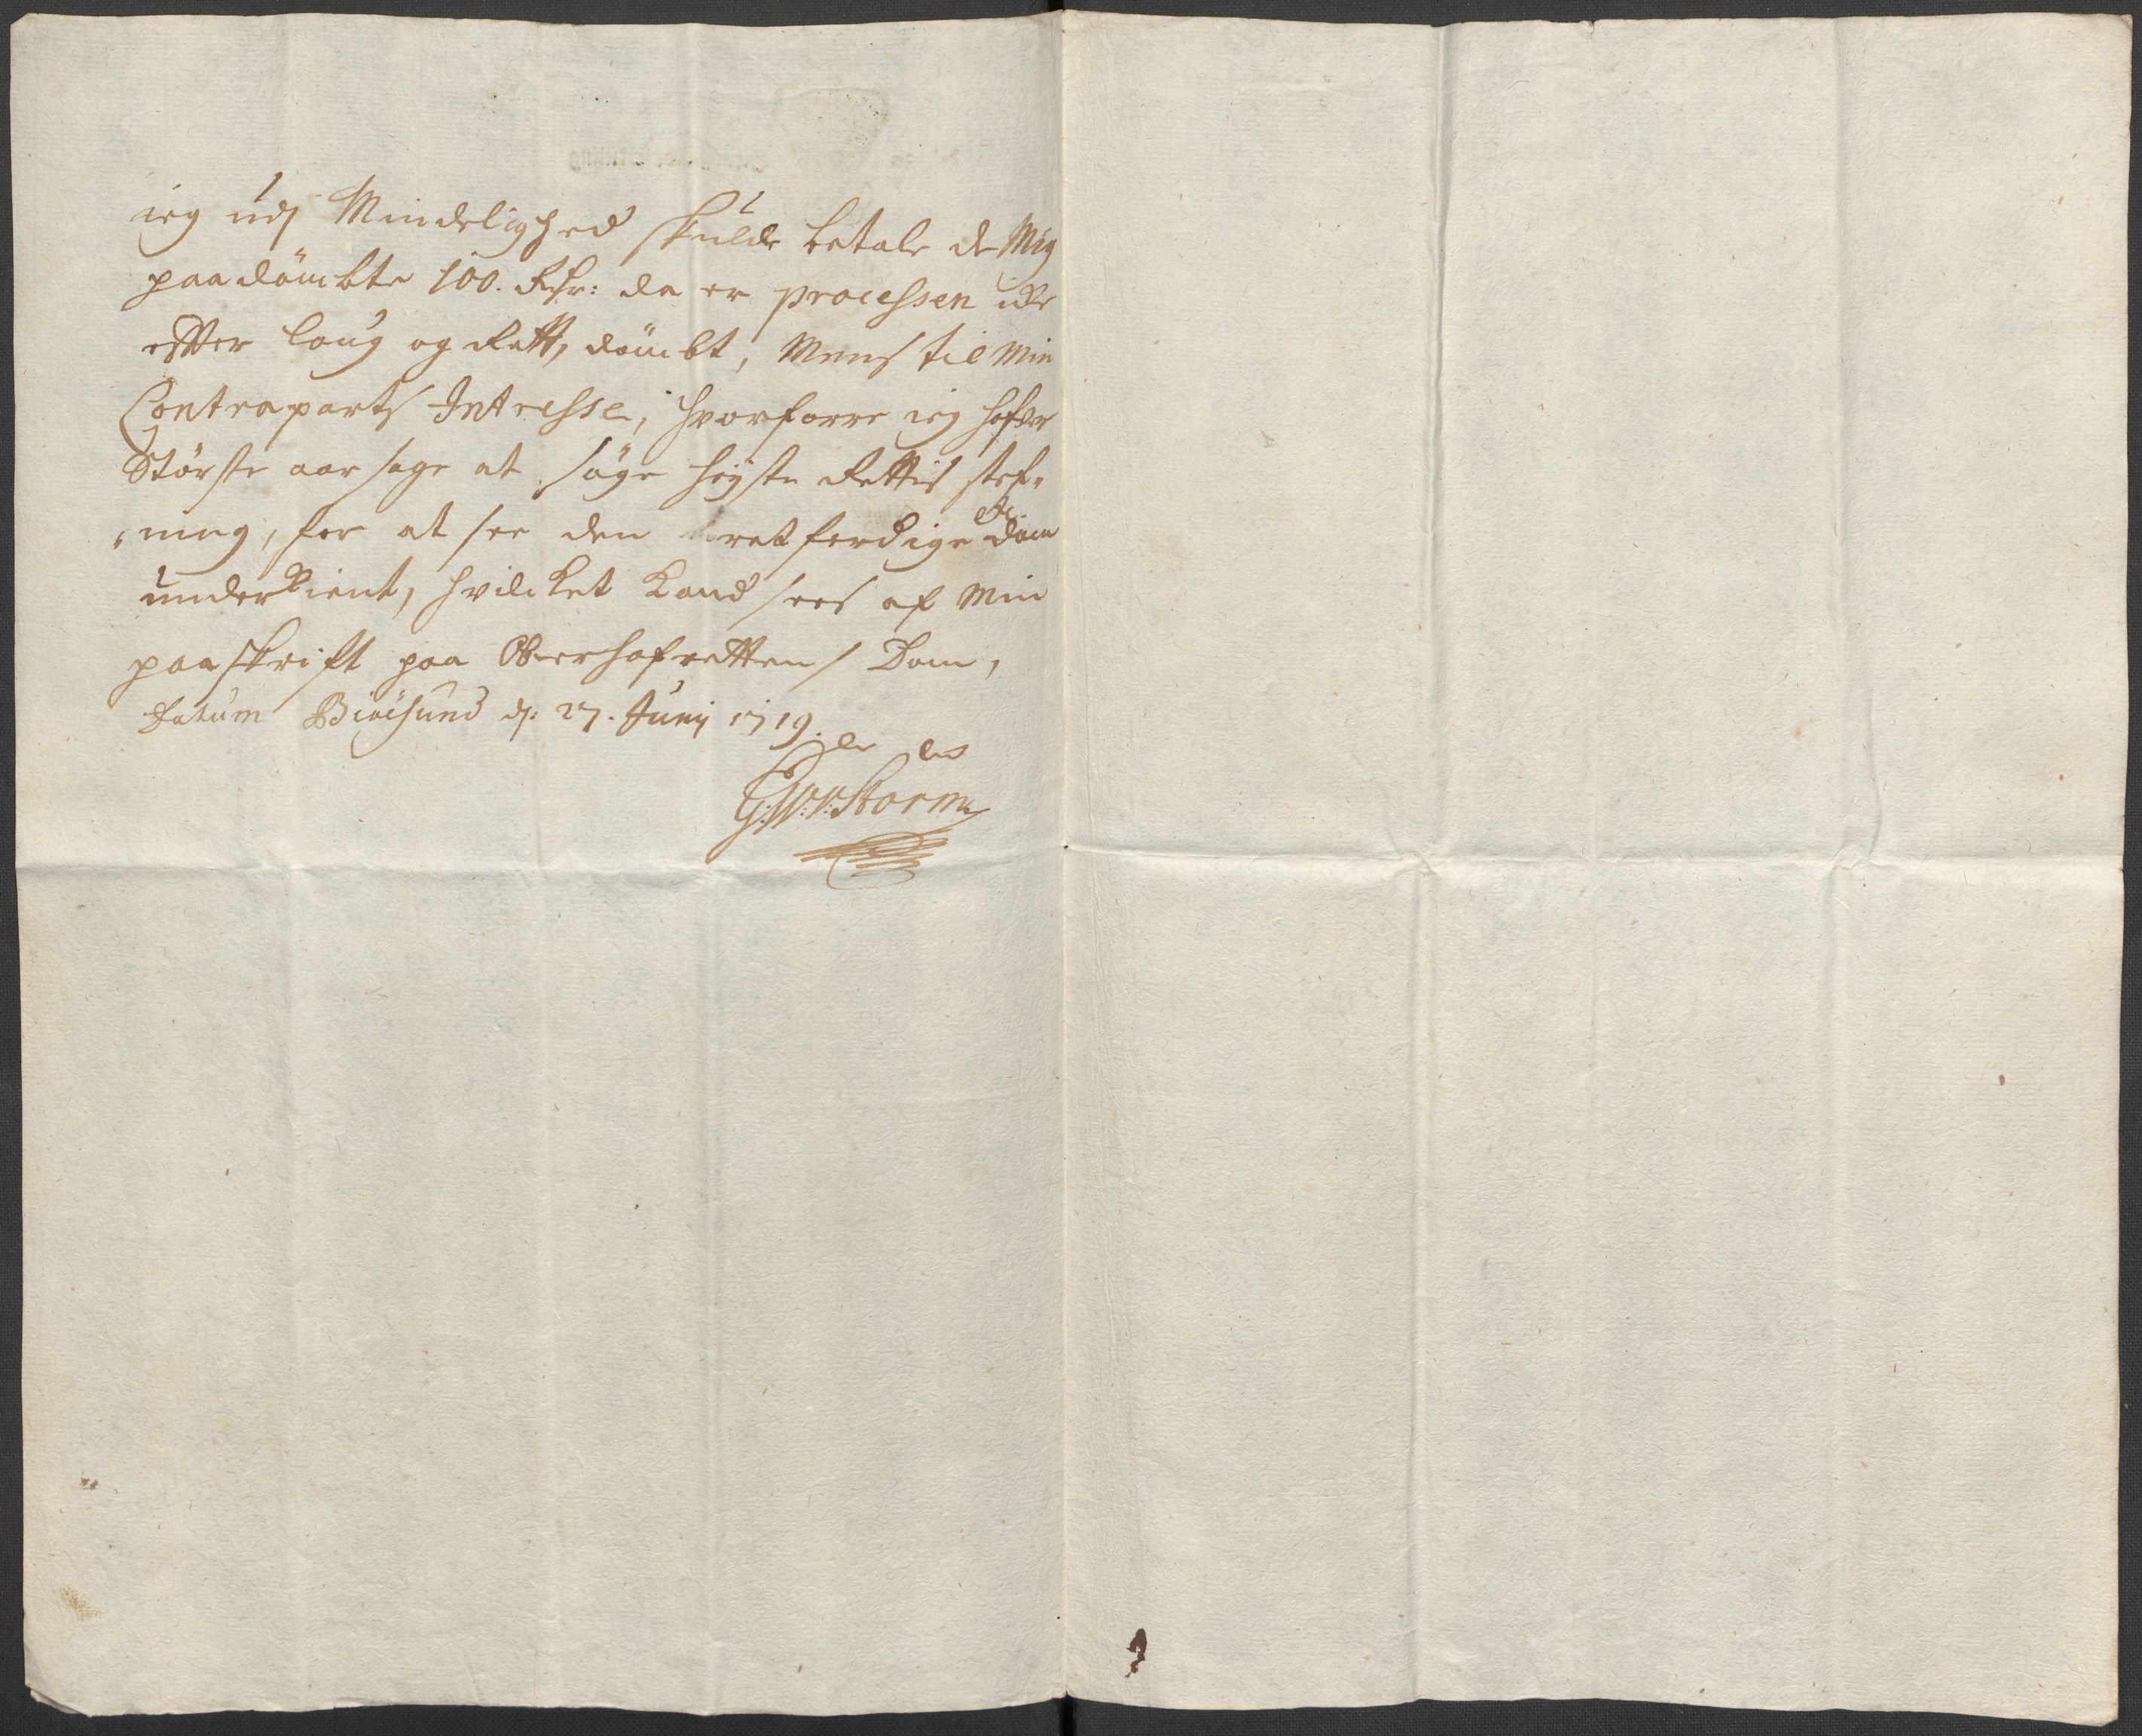 ieg udj Mindelighed skulde betale de Mig
paadömbte 100. Rdr: da er processen icke
efter loug og Rett, dömbt, Mens til Min
Contraparts Intresse, hvorforre ieg hafver
Störste aarsage at söge höyste Rettis stef-
ning, for at see den uretferdige Dom
underkient, hvilcket kand sees af Min
paaskrift paa Oberhofrettens Dom,
Datum Biöesund dj: 27. Junij 1719.
G:W:V:Storm